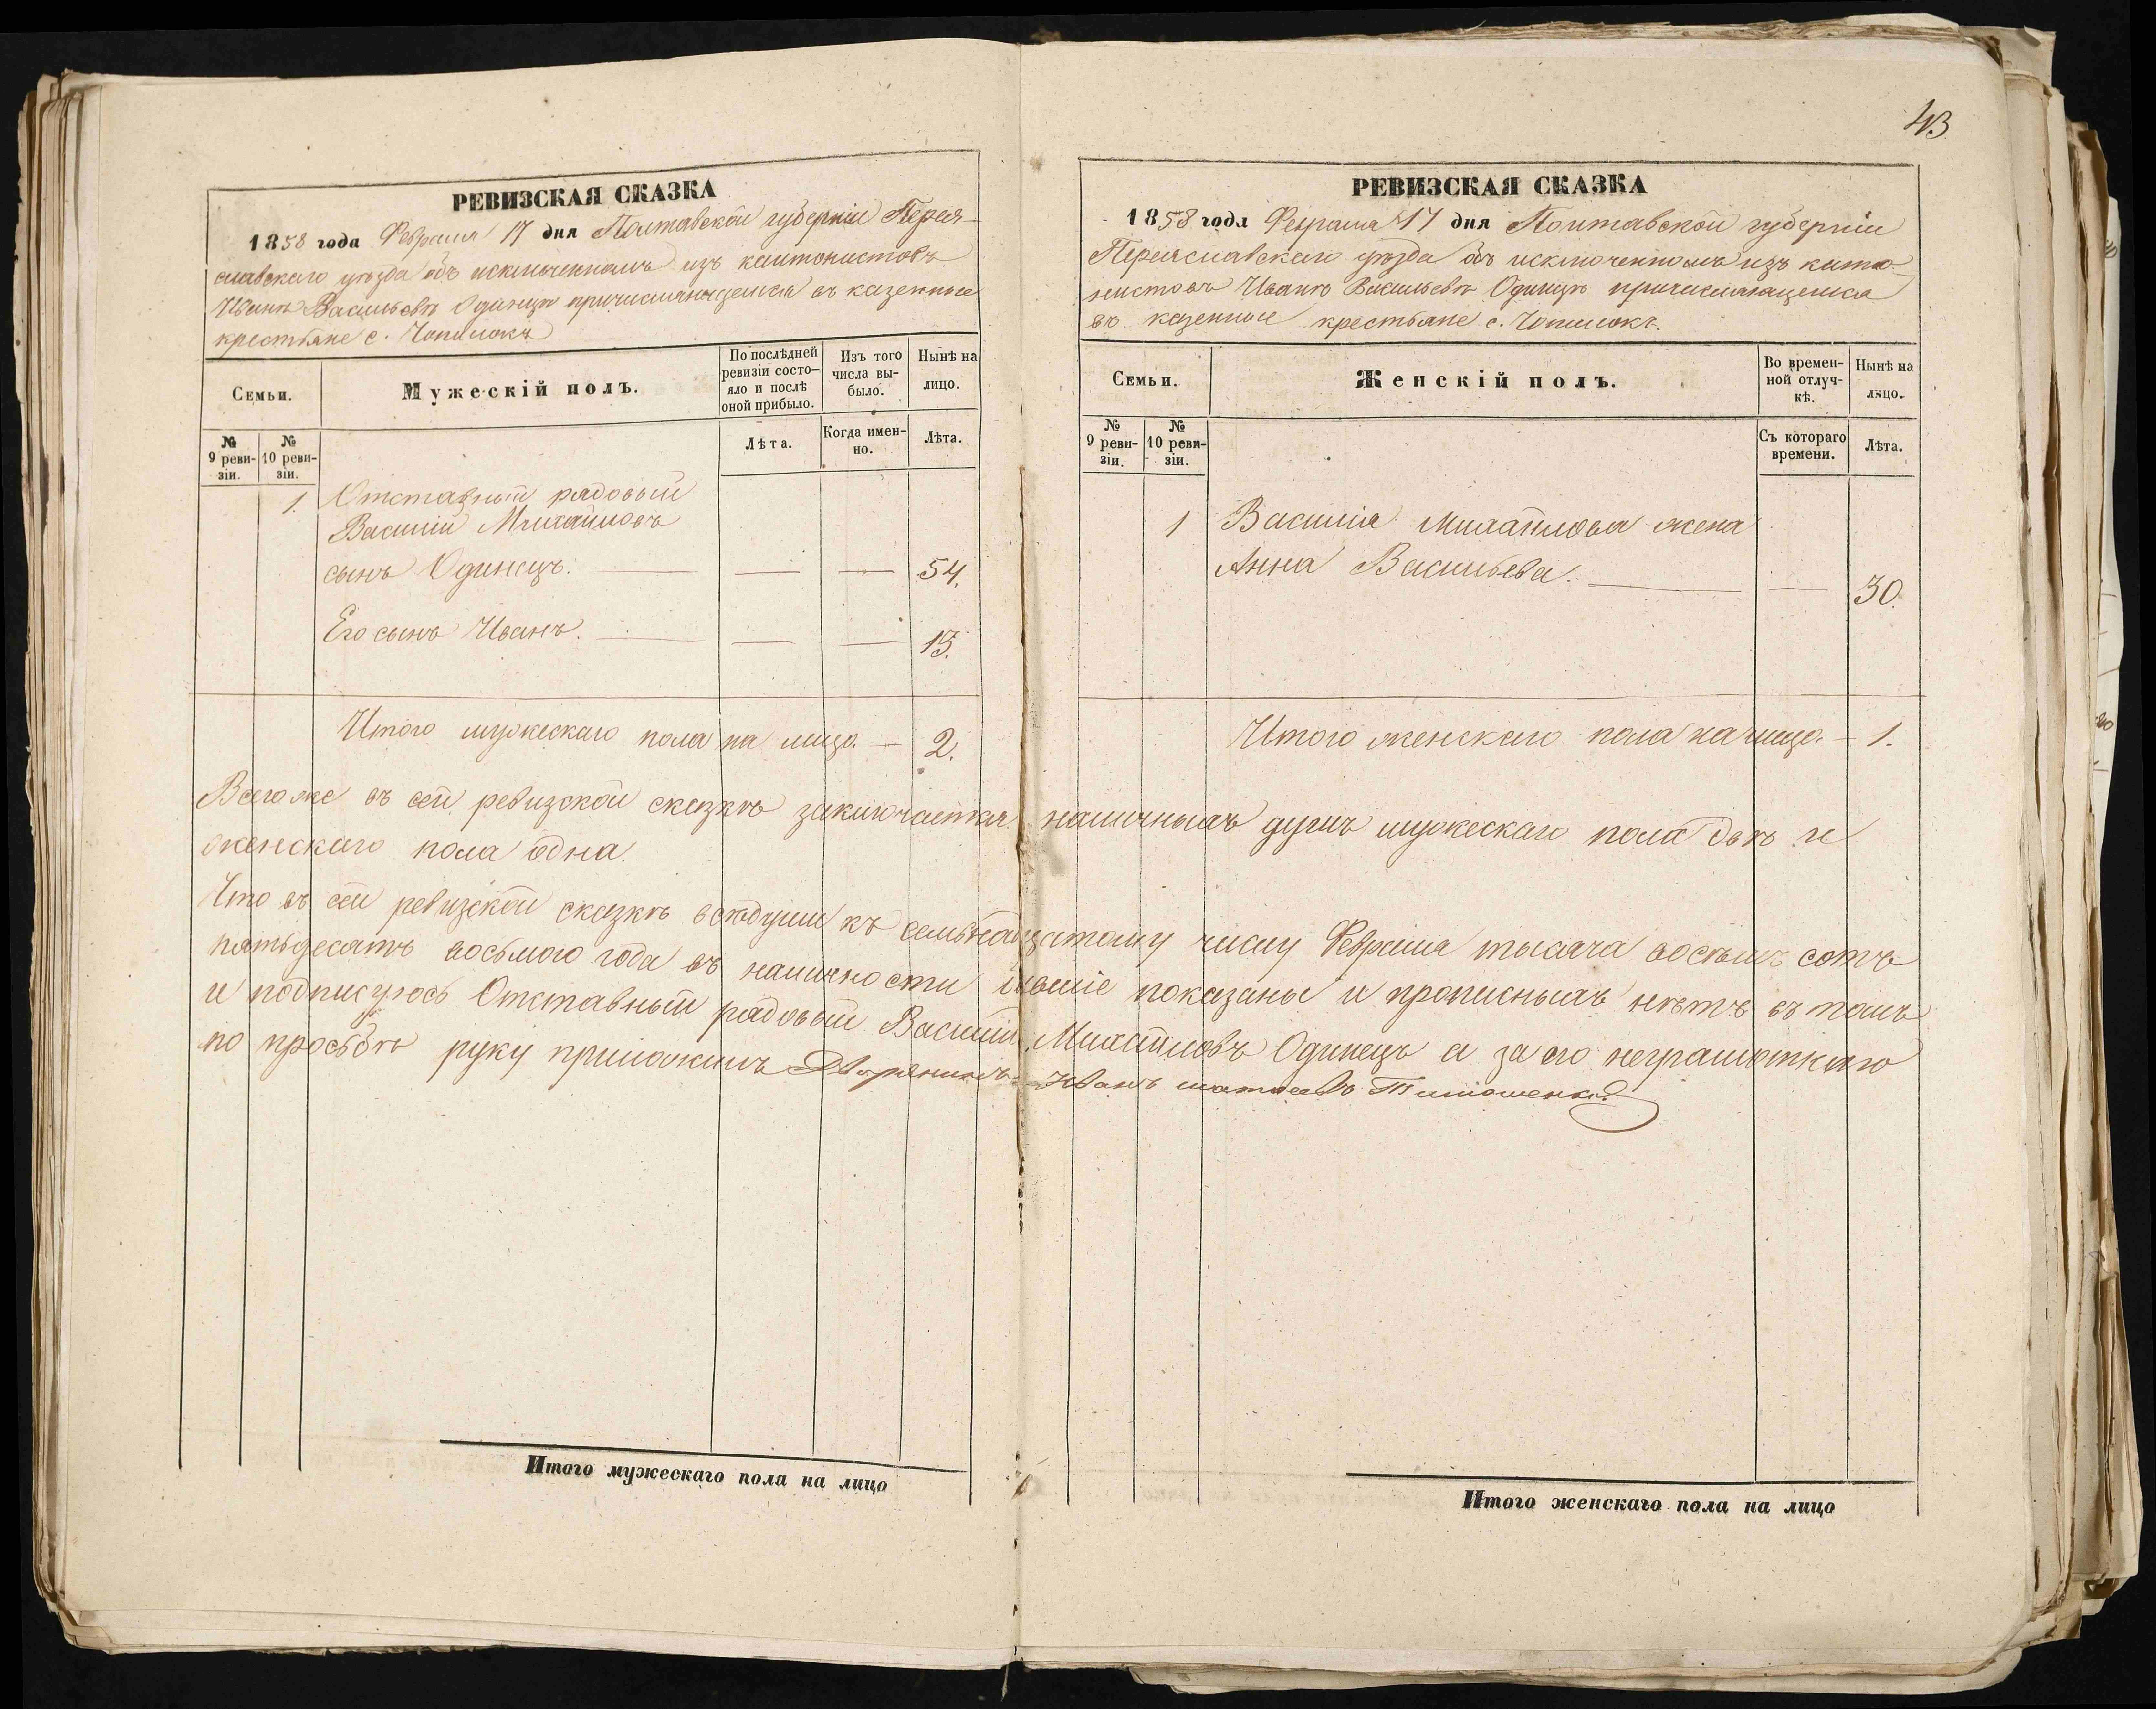 43
РЕВИЗСКАЯ СКАЗКА
1858 года Февраля 17 дня Полтавской губерніи Перея-
славскаго уѣзда объ исключенномъ изъ кантонистовъ
Иванѣ Васильевѣ Одинцѣ причисляющемся въ казенные
крестьяне с. Чопилокъ
Семьи.
Мужескій полъ.
По послѣдней
ревизіи состо-
яло и послѣ
оной прибыло.
Изъ того
числа вы-
было.
Нынѣ на
лицо.
№
9 реви-
зіи.
№
10 реви-
зіи.
Лѣта.
Когда имен-
но.
Лѣта.
1. Отставный рядовый
Василій Михайловъ
сынъ Одинецъ. — — — 54.
Его сынъ Иванъ. — — — 13.
Итого мужескаго пола на лицо. — 2.
РЕВИЗСКАЯ СКАЗКА
1858 года Февраля 17 дня Полтавской губерніи
Переяславскаго уѣзда объ исключенномъ изъ канто-
нистовъ Иванѣ Васильевѣ Одинцѣ причисляющемся
въ казенные крестьяне с. Чопилокъ.
Семьи.
Женскій полъ.
Во времен-
ной отлуч-
кѣ.
Нынѣ на
лицо.
№
9 реви-
зіи.
№
10 реви-
зіи.
Съ котораго
времени.
Лѣта.
1 Василія Михайлова жена
Анна Васильева. — — 30.
Итого женскаго пола на лицо. — 1.
Всего же въ сей ревизской сказкѣ заключается наличныхъ душъ мужескаго пола двѣ и
женскаго пола одна.
Что въ сей ревизской сказкѣ всѣ души къ семьнадцатому числу Февраля тысяча восемь сотъ
пятьдесятъ восьмого года въ наличности бывшіе показаны и прописныхъ нѣтъ въ томъ
и подписуюсь Отставный рядовый Василій Михайловъ Одинецъ а за его неграмотнаго
по просьбѣ руку приложилъ Дворянинъ Иванъ Матвеевъ Тимошенко
Итого мужескаго пола на лицо
Итого женскаго пола на лицо